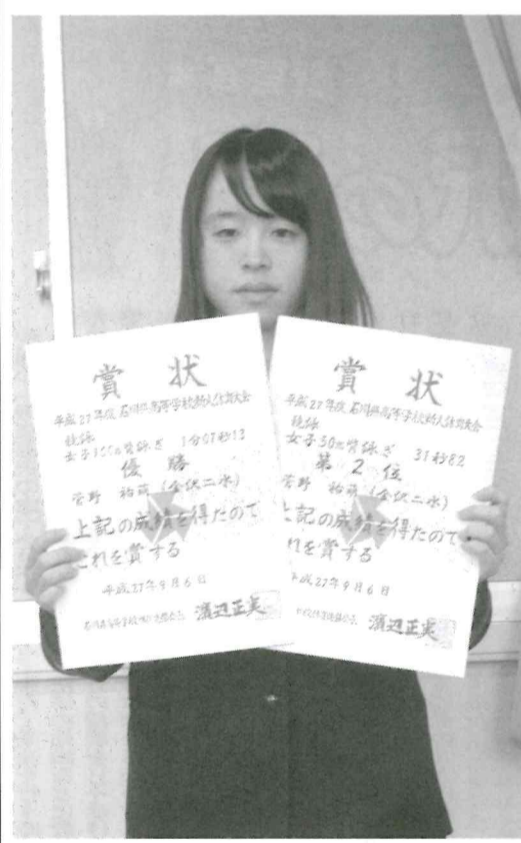 賞状
平成27年度 石川県高等学校新人体育大会
競泳
女子100m背泳ぎ 1分07秒13
優勝
菅野 祐萌（金沢二水）
上記の成績を得たので
これを賞する
平成27年9月6日
濵辺正実
賞状
平成27年度 石川県高等学校新人体育大会
競泳
女子50m背泳ぎ 31秒82
第2位
菅野 祐萌（金沢二水）
上記の成績を得たので
れを賞する
平成27年9月6日
濵辺正実